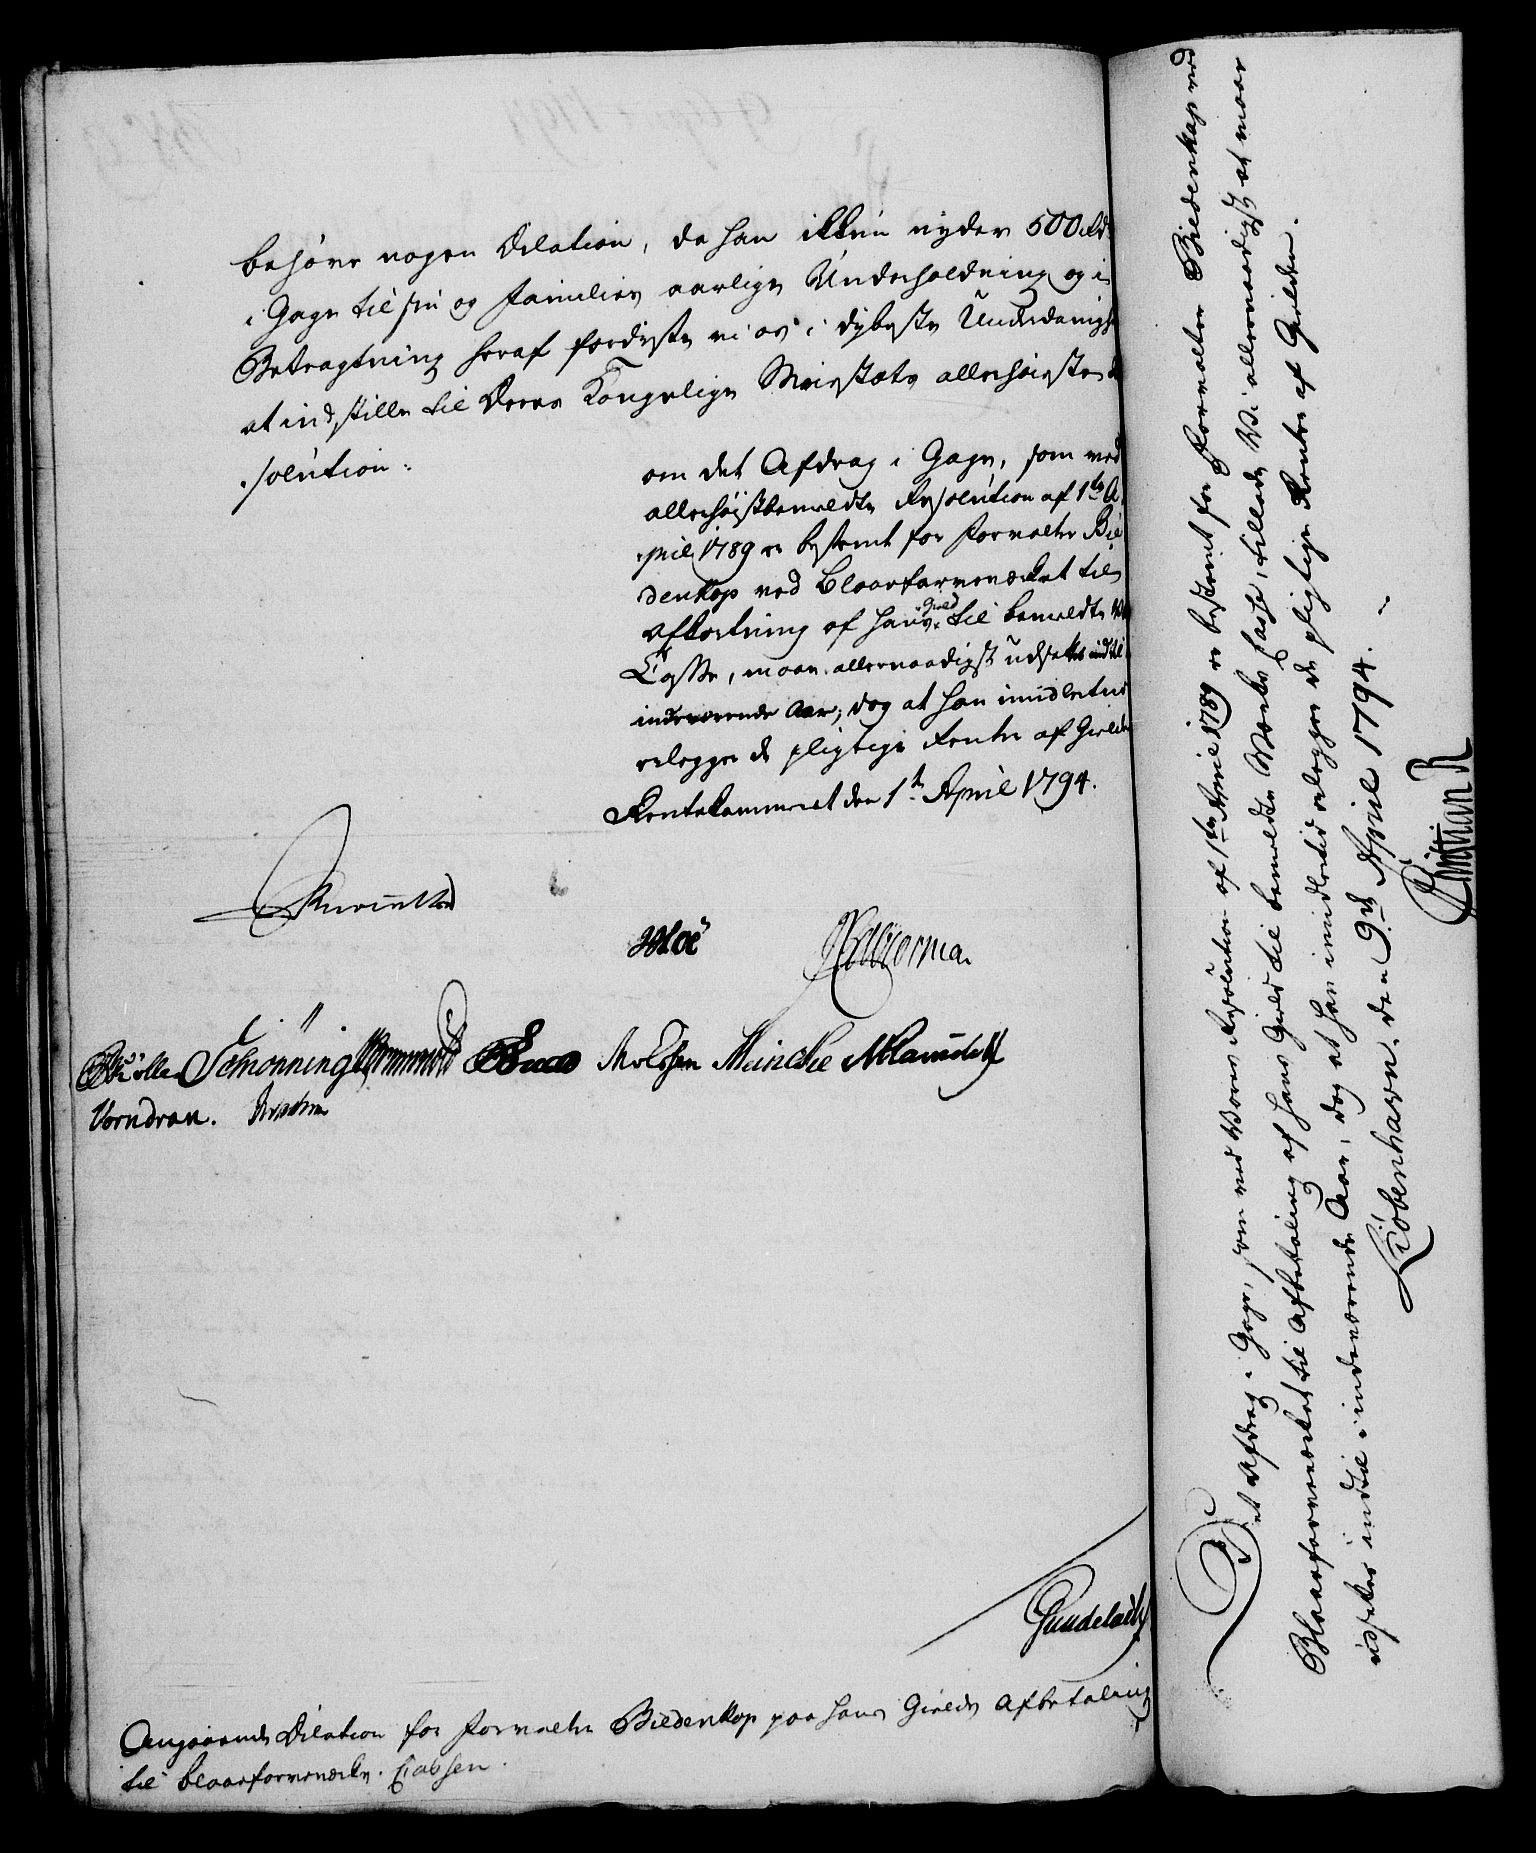 behöve nogen Dilation, da han ikkun nyder 500 Rd
i Gage til sin og Families aarlige Underholdning og i
Betragtning heraf fordriste vi os i dybeste Underdanigh
at indstille til Deres Kongelige Majestæts allerhöieste
solution:
om det Afdrag i Gage, som ved
allerhöistbemeldte Resolution af 1te A
pril 1789 er bestemt for Forvalter Bie
denkap ved Blaafarveværket til
Afkortning af hans Gield til bemeldte
Casse, maae allernaadigst udsættes indtil
indeværende Aar; dog at han imidlertid
erlegger de pligtige Renter af Gielden
Rentekammeret den 1te April 1794.
Schönning
Meincke
Vorndran.
Gundelach
Angaaende Dilation for Forvalter Biedenkap paa hans Gields Afbetaling
til Blaafarveværks Cassen.
Det Afdrag i Gage, som ved Vores Resolution af 1te April 1789 er bestemt for Forvalter Biedenkap ved
Blaafarveværket til Afbetaling af hans Gield til bemeldte Værks Casse, tillade Vi allernaadigst at maae
udsættes indtil i indeværende Aar, dog at han imidlertid erlegger de pligtige Renter af Gielden.
Kiöbenhavn, den 9de April 1794.
Christian R